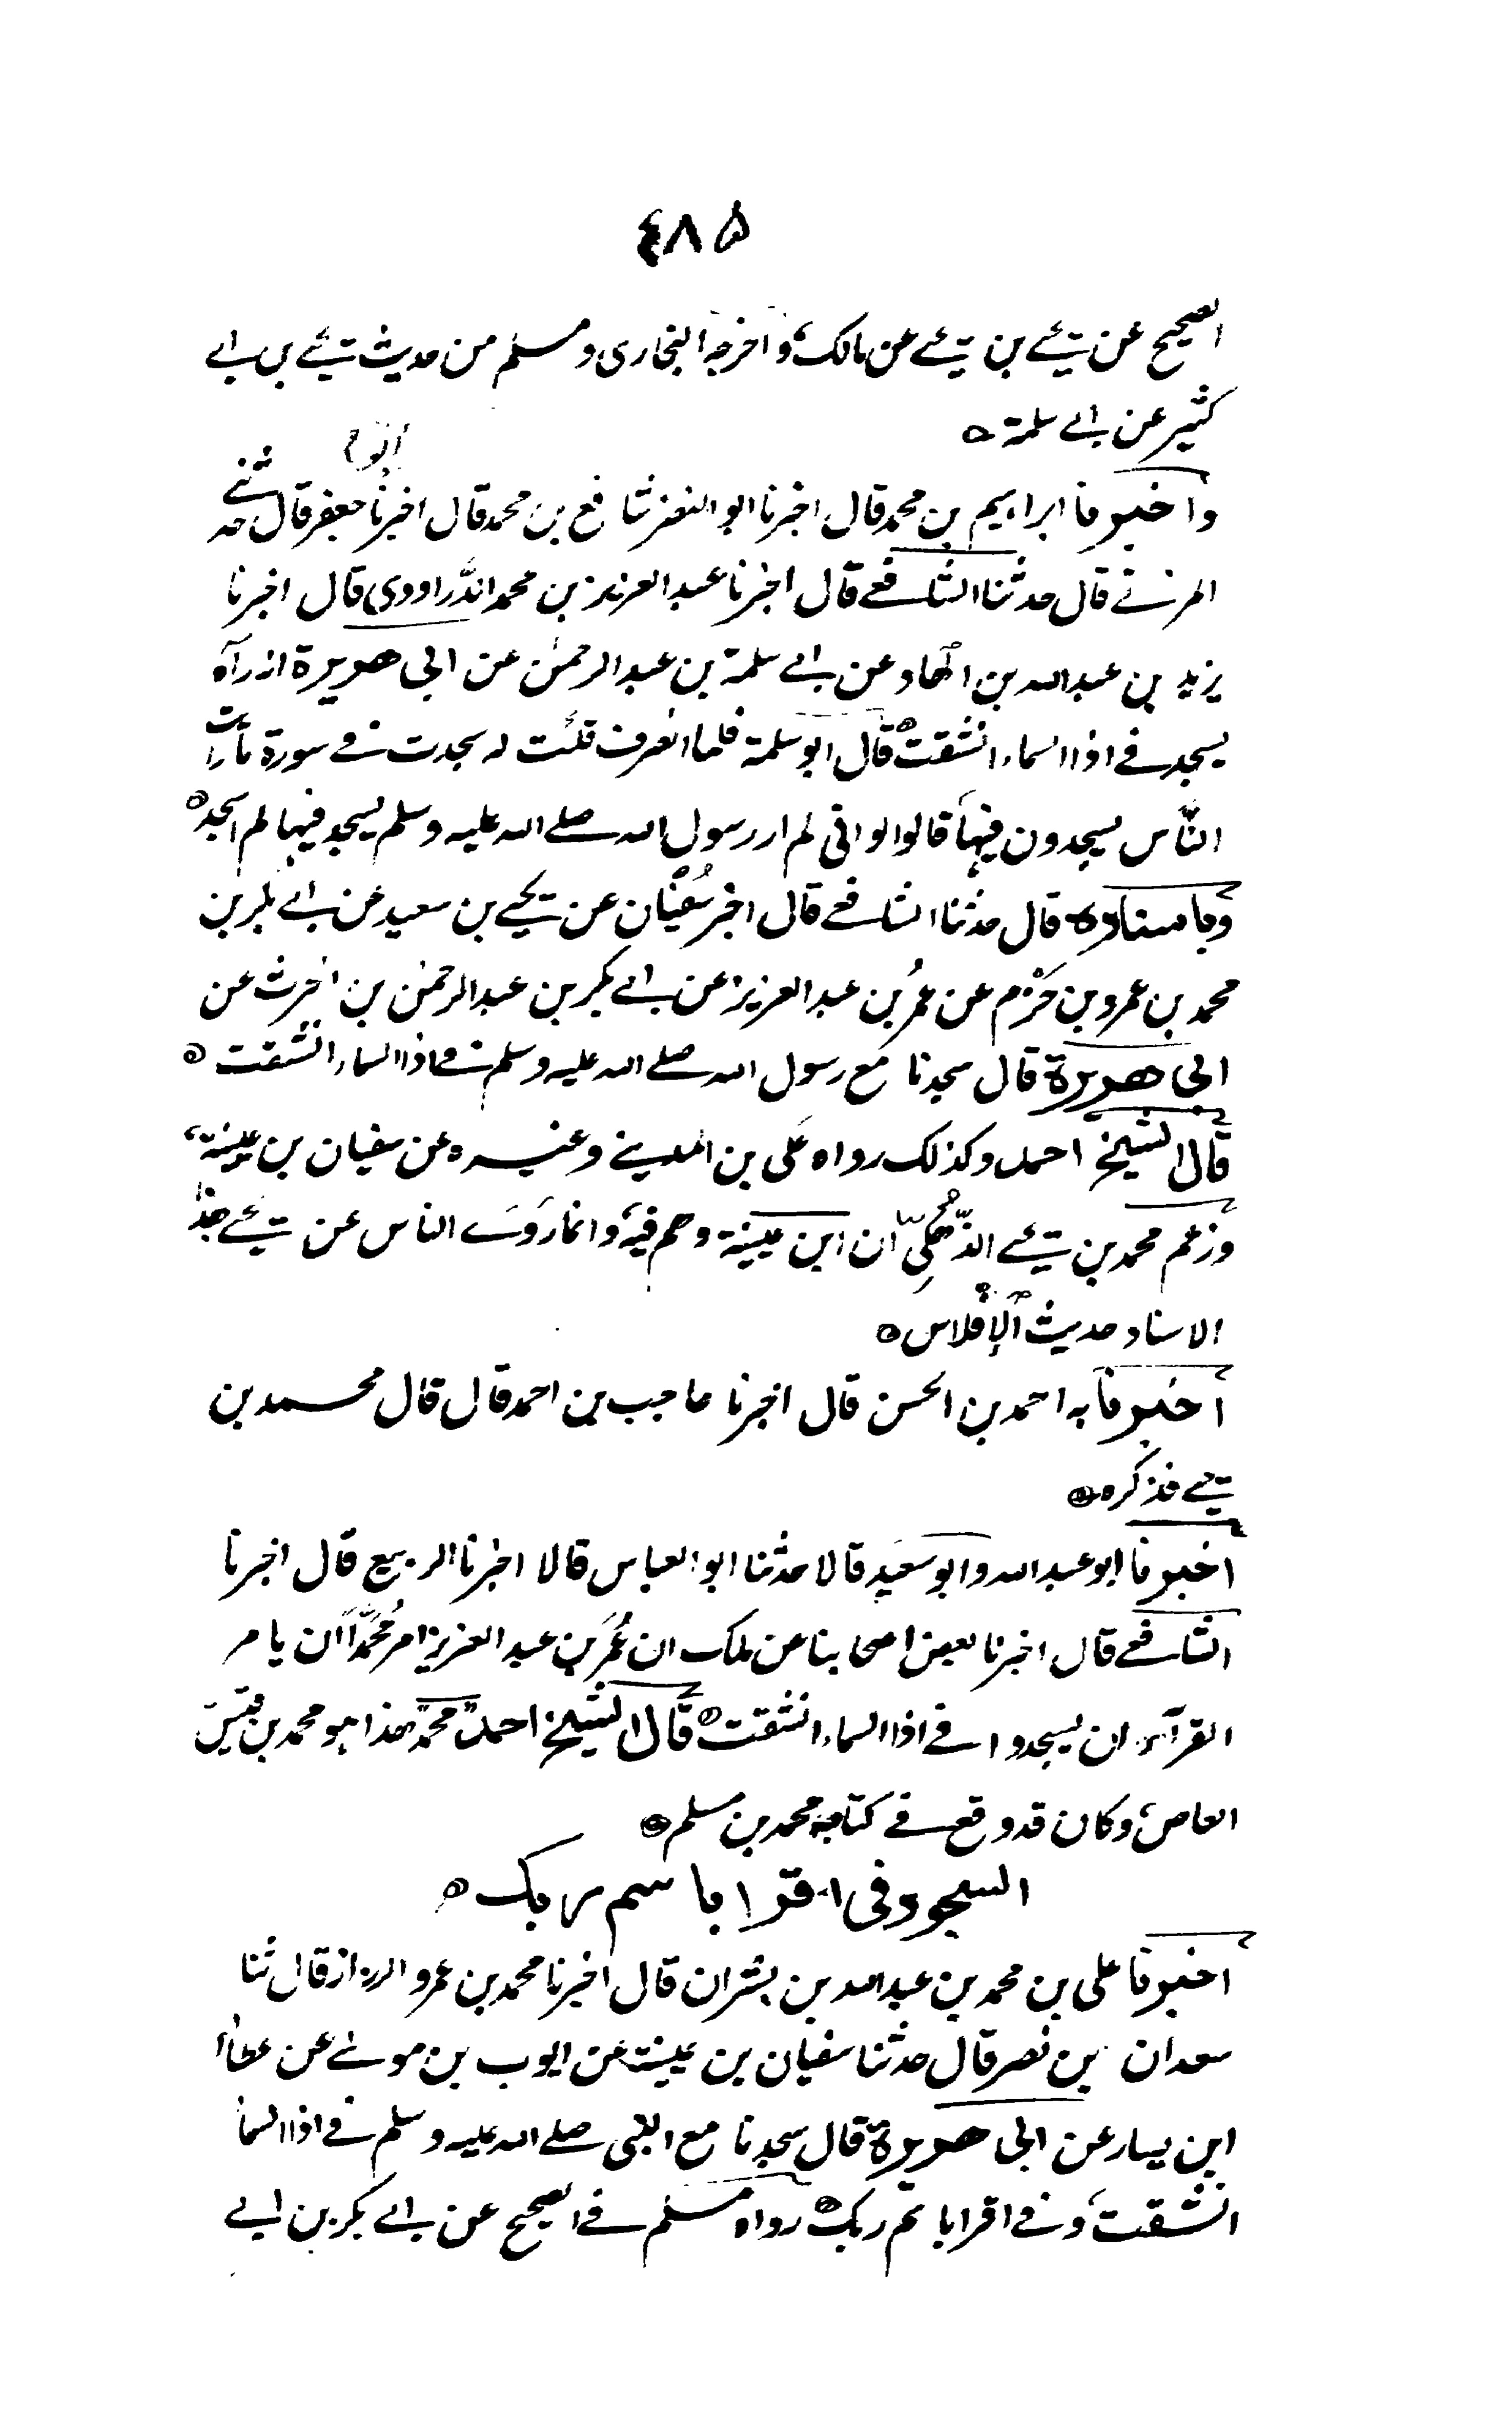 ٤٨٥
الصحيح عن يحيے بن يحيے عن مالك، واخرجه البخارى ومسلم من حديث يحيے بن ابے
كثير عن ابے سلمة ه
ابو
واخبرنا ابراهيم بن محمد قال اخبرنا ابو النضر شافع بن محمد قال اخبرنا جعفر قال حدثنے
المزنے قال حدثنا الشافعے قال اخبرنا عبد العزيز بن محمد الدَّراوردى قال اخبرنا
يزيد بن عبد الله بن الهاد عن ابے سلمة بن عبد الرحمن عن ابى هريرة انه رآه
يسجد فے اذا السماء انشقت ه قال ابو سلمة فلما انصرف قلت له سجدت فے سورة ما رأيت
النَّاس يسجدون فيها قالوا لو انى لم ار رسول الله صلے الله عليه وسلم يسجد فيها لم اسجد ه
وباسناده قال حدثنا الشافعے قال اخبر سُفْيان عن يحيے بن سعيد عن ابے بكر بن
محمد بن عمرو بن حَزْم عن عمُر بن عبد العزيز عن ابے بكر بن عبد الرحمن بن الحرث عن
ابى هريرة قال سجدنا مع رسول الله صلے الله عليه وسلم فے اذا السماء انشقت ه
قال الشيخ احمد وكذلك رواه على بن المدينے وغيره عن سفيان بن عيينة،
وزعم محمد بن يحيے الذُّهلِىّ ان ابن عيينة وهم فيه، وانما رَوَے الناس عن يحيے بهذا
الاسناد حديث الإفلاس ه
اخبرنا به احمد بن الحسن قال اخبرنا حاجب بن احمد قال قال محمد بن
يحيے فذكره ه
اخبرنا ابو عبد الله وابو سعيد قالا حدثنا ابو العباس قالا اخبرنا الربيع قال اخبرنا
الشافعے قال اخبرنا بعض اصحابنا عن ملك ان عُمَر بن عبد العزيز امر مُحمَّدًا ان يامر
القرآء ان يسجدوا فے اذا السماء انشقت ه قال الشيخ احمد محمد هذا هو محمد بن قيس
العاص، وكان قد وقع فے كتابه محمد بن مسلم ه
السجود فى اقرا باسم ربك ه
اخبرنا على بن محمد بن عبد الله بن بشران قال اخبرنا محمد بن عمرو الرزاز قال ثنا
سعدان بن نصر قال حدثنا سفيان بن عيينة عن ايوب بن موسے عن عطاء
ابن يسار عن ابى هريرة قال سجدنا مع النبى صلے الله عليه وسلم فے اذا السماء
انشقت، وفے اقرا باسم ربك ه رواه مسلم فے الصحيح عن ابے بكر بن ابے